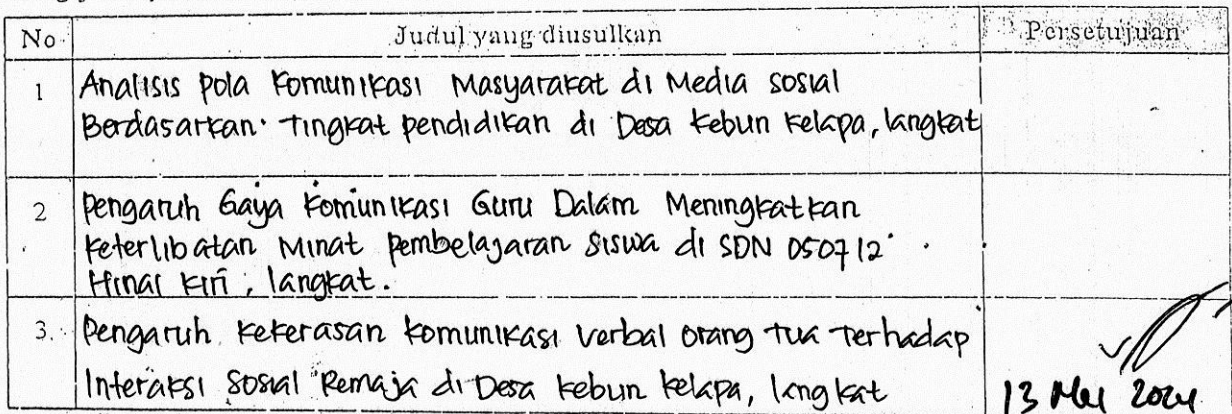 No Judul yang diusulkan Persetujuan
1 Analisis Pola Komunikasi Masyarakat di Media sosial
Berdasarkan tingkat pendidikan di Desa kebun kelapa, langkat
2 Pengaruh Gaya Komunikasi Guru Dalam Meningkatkan
keterlibatan Minat pembelajaran siswa di SDN 050712
Hinai kiri, langkat.
3. Pengaruh kekerasan komunikasi verbal orang tua Terhadap
Interaksi Sosial Remaja di Desa kebun kelapa, langkat
13 Mei 2024